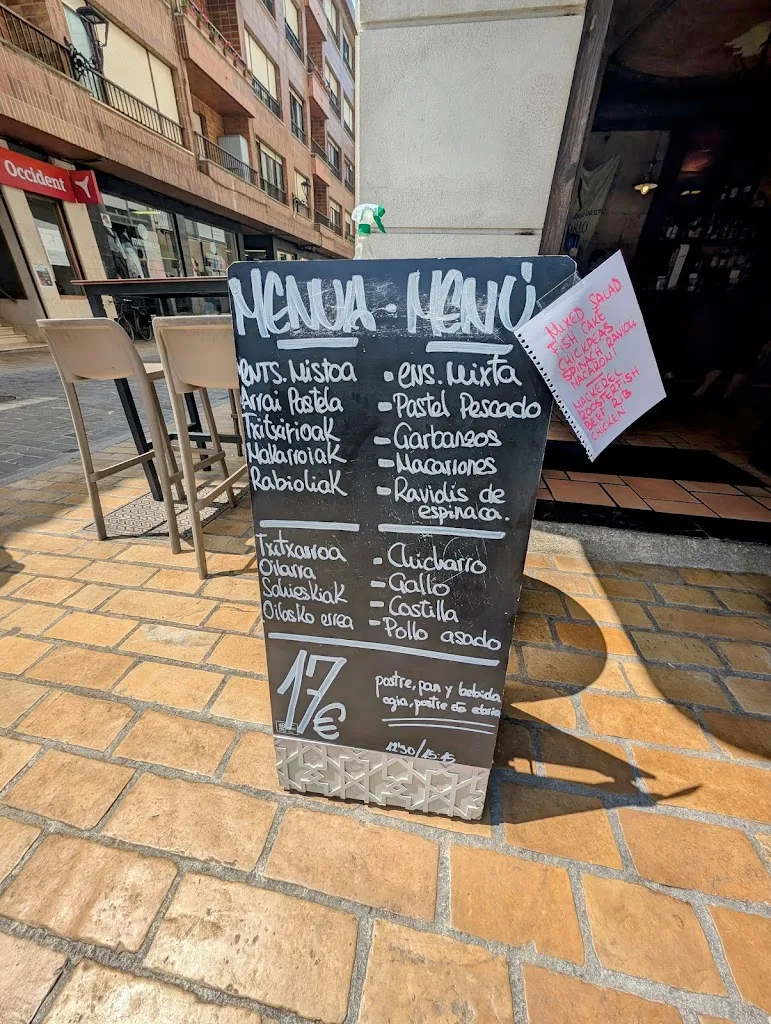 Occident
MENUA - MENÚ
ENTS. Mistoa
Arrai Pastela
Txitxirioak
Makarroiak
Rabioliak
- ENS. Mixta
- Pastel Pescado
- Garbanzos
- Macarrones
- Raviolis de
espinaca.
Txitxarroa
Oilarra
Saiheskiak
Oilasko errea
- Chicharro
- Gallo
- Costilla
- Pollo asado
17€
postre, pan y bebida
ogia, postre
12'30/15:45
MIXED SALAD
FISH CAKE
CHICKPEAS
SPINACH RAVIOLI
MACARONI
MACKEREL
ROOSTERFISH
BEEF RIB
CHICKEN